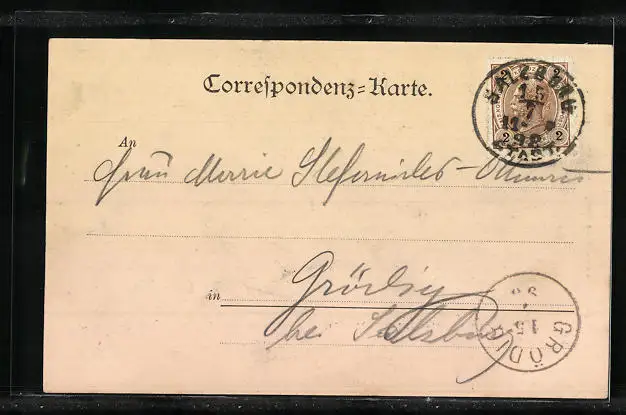 Correspondenz-Karte.
SALZBURG
15
7
98
STADT
2 2
An
Frau Marie
in Grödig
bei Salzburg
GRÖDIG
15
98